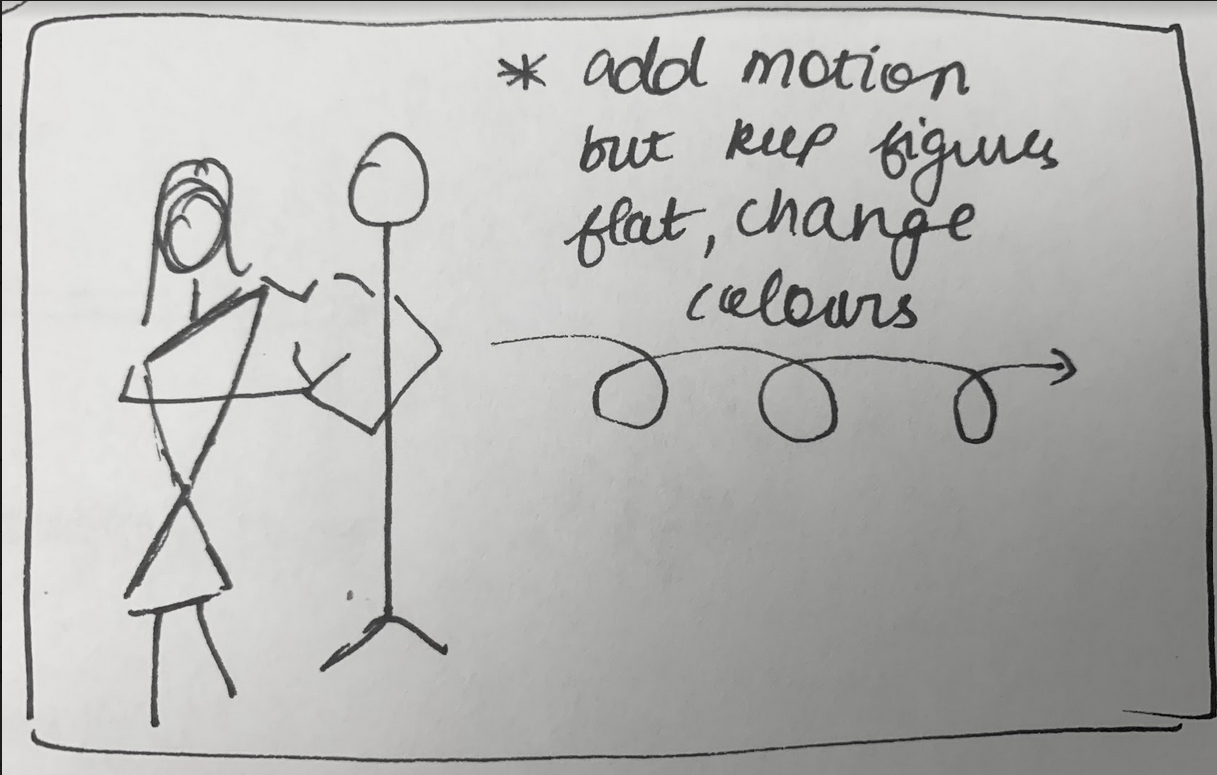 * add motion
but keep figures
flat, change
colours